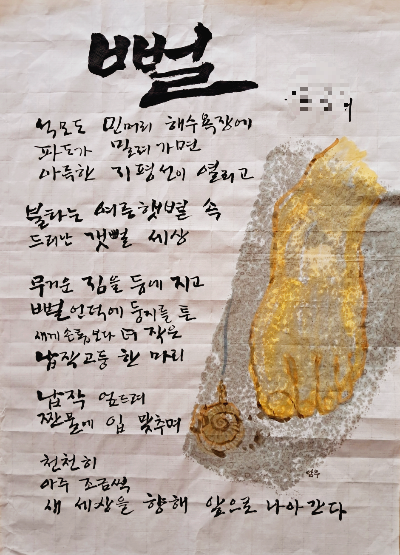 뻘
석모도 민머리 해수욕장에
파도가 밀려가면
아득한 지평선이 열리고
불타는 여름햇볕 속
드러난 갯뻘 세상
무거운 짐을 등에 지고
뻘 언덕에 둥지를 튼
새끼손톱보다 더 작은
납작고둥 한 마리
납작 엎드려
짠물에 입 맞추며
천천히
아주 조금씩
새 세상을 향해 앞으로 나아간다